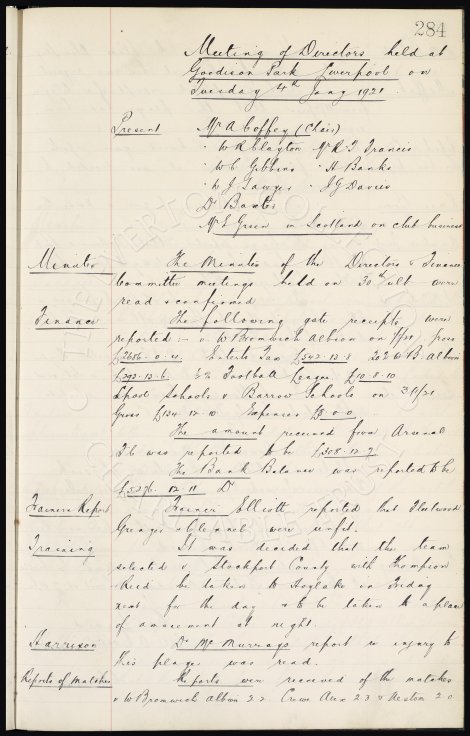 284
Meeting of Directors held at
Goodison Park Liverpool on
Tuesday 4th Jany 1921.
Present Mr A Coffey (Chair)
" W R Clayton Mr R T Francis
" W C Gibbins " H Banks
" W J Sawyer " J G Davies
Dr Baxter
Mr E Green in Scotland on club business
Minutes The Minutes of the Directors & Finance
Committee meetings held on 30th ult were
read & confirmed
Finance The following gate receipts were
reported :- v W Bromwich Albion on Gross
£2686-0-11. Enterts Tax £542-13-8 20% W B. Albion
£293-13-6. ½% Football League £10-8-10
Lpool Schools v Barrow Schools on 3/1/21
Gross £134-12-10 Expenses £8-0-0
The amount received from Arsenal
F.C was reported to be £308-12-7
The Bank Balance was reported to be
12-11 Dr
Trainers Report Trainer Elliott reported that Fleetwood
Grenyer & Blennel were unfit.
Training It was decided that the team
selected v Stockport County with Thompson
& Reid be taken to Hoylake on Friday
next for the day & to be taken to a place
of amusement at night.
Harrison Dr McMurrays report re injury to
this player was read.
Reports of Matches Reports were received of the matches
v W Bromwich Albion 2.2. Crewe Alex 2.3 & Neston 2.0